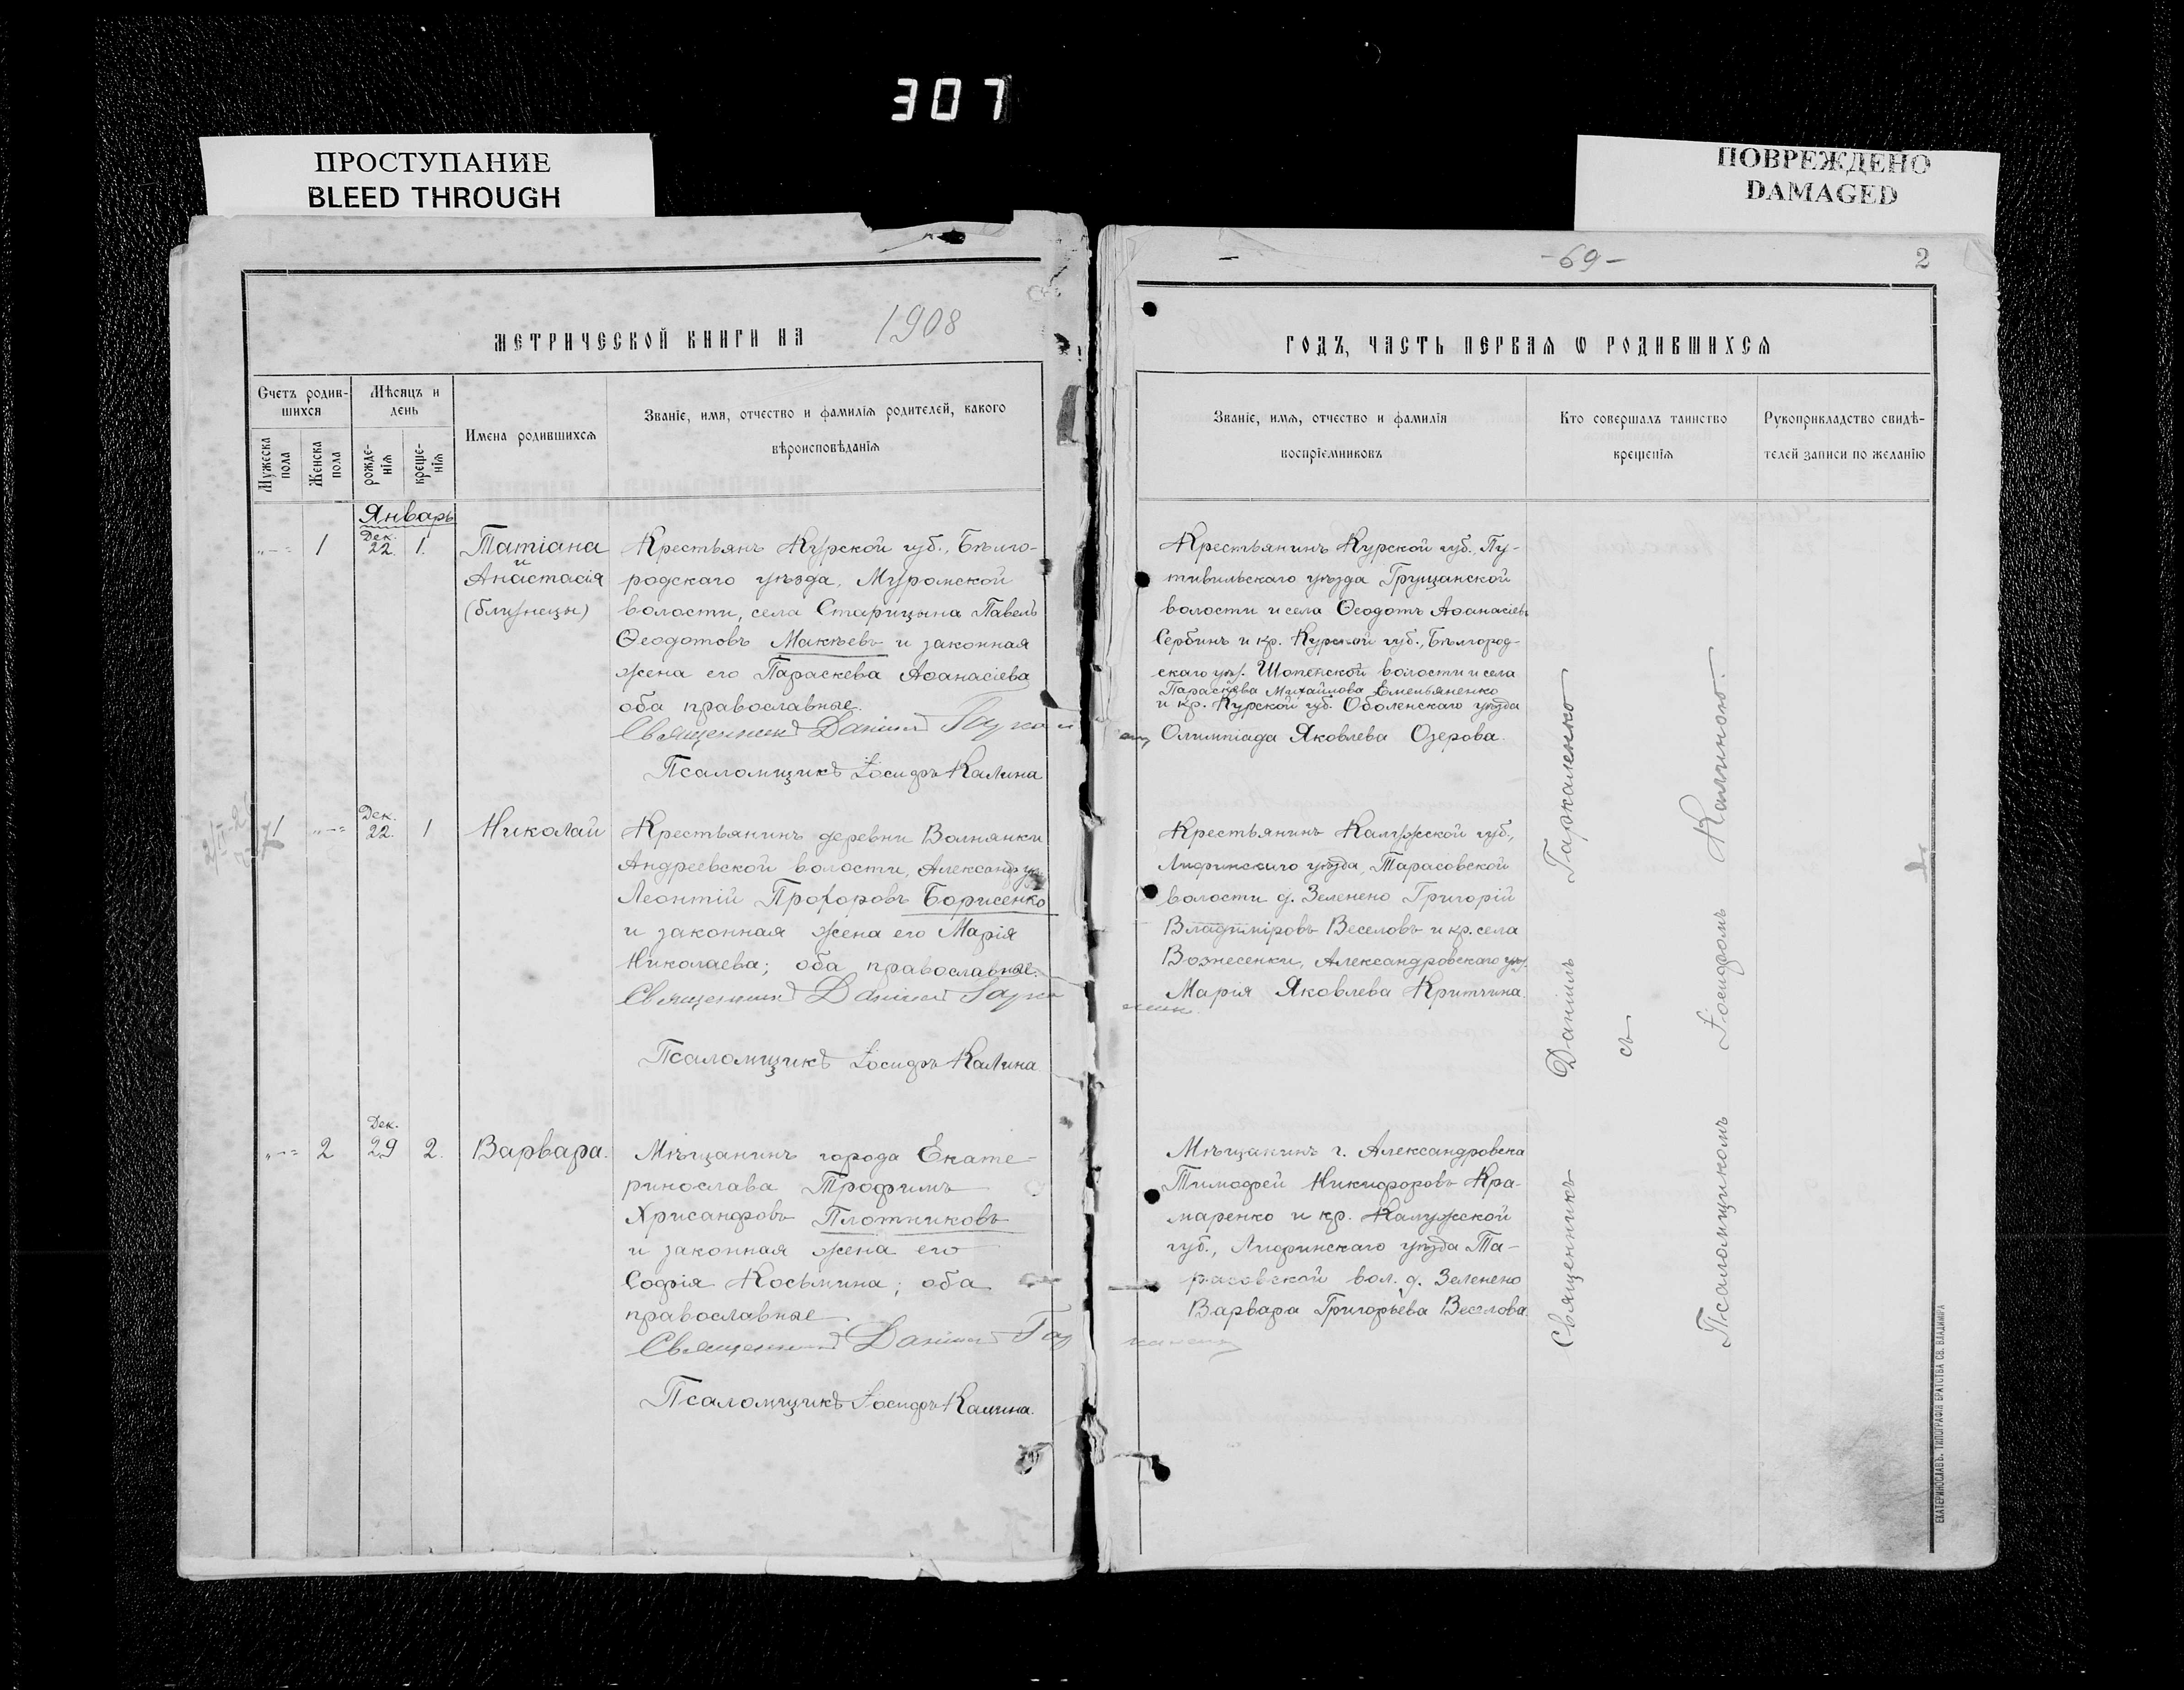 307
ПРОСТУПАНИЕ
BLEED THROUGH
ПОВРЕЖДЕНО
DAMAGED
МЕТРИЧЕСКОЙ КНИГИ НА 1908
Счетъ родив-
шихся
Мѣсяцъ и
день
Мужеска
пола
Женска
пола
рожде-
нія
креще-
нія
Имена родившихся
Званіе, имя, отчество и фамилія родителей, какого
вѣроисповѣданія
Январь
1
Дек.
22. 1.
Татіана
и
Анастасія
(близнецы)
Крестьянъ Курской губ., Бѣлго-
родскаго уѣзда, Муромской
волости, села Старицына Павелъ
Ѳеодотовъ Макѣевъ и законная
жена его Параскева Аѳанасіева
оба православные.
Священникъ Даніилъ
Псаломщикъ Іосифъ Калина
1
Дек.
22. 1
Николай
Крестьянинъ деревни Волнянки
Андреевской волости, Александ. уѣз.
Леонтій Прохоровъ Борисенко
и законная жена его Марія
Николаева; оба православные.
Священникъ Даніилъ
Псаломщикъ Іосифъ Калина
2
Дек.
29 2.
Варвара.
Мѣщанинъ города Екате-
ринослава Трофимъ
Хрисанфовъ Плотниковъ
и законная жена его
Софія Косьмина; оба
православные.
Священникъ Даніилъ
Псаломщикъ Іосифъ Калина.
-69-
2
ГОДЪ, ЧАСТЬ ПЕРВАЯ Ѡ РОДИВШИХСЯ
Званіе, имя, отчество и фамилія
воспріемниковъ
Кто совершалъ таинство
крещенія
Рукоприкладство свидѣ-
телей записи по желанію
Крестьянинъ Курской губ., Пу-
тивильскаго уѣзда Грущанской
волости и села Ѳеодотъ Аѳанасіевъ
Сербинъ и кр. Курской губ., Бѣлгород-
скаго уѣз. Шопенской волости и села
Параскева Михайлова Емельяненко
и кр. Курской губ. Оболенскаго уѣзда
Олимпіада Яковлева Озерова.
Крестьянинъ Калужской губ.,
Лифинскаго уѣзда, Тарасовской
волости д. Зеленено Григорій
Владиміровъ Веселовъ и кр. села
Вознесенки, Александровскаго уѣз.
Марія Яковлева Критчина.
Мѣщанинъ г. Александровска
Тимофей Никифоровъ Кра-
маренко и кр. Калужской
губ., Лифинскаго уѣзда Та-
расовской вол. д. Зеленено
Варвара Григорьева Веселова.
Священникъ Даніилъ Гаркаленко
съ
Псаломщикомъ Іосифомъ Калиною.
ЕКАТЕРИНОСЛАВЪ. ТИПОГРАФІЯ БРАТСТВА СВ. ВЛАДИМІРА